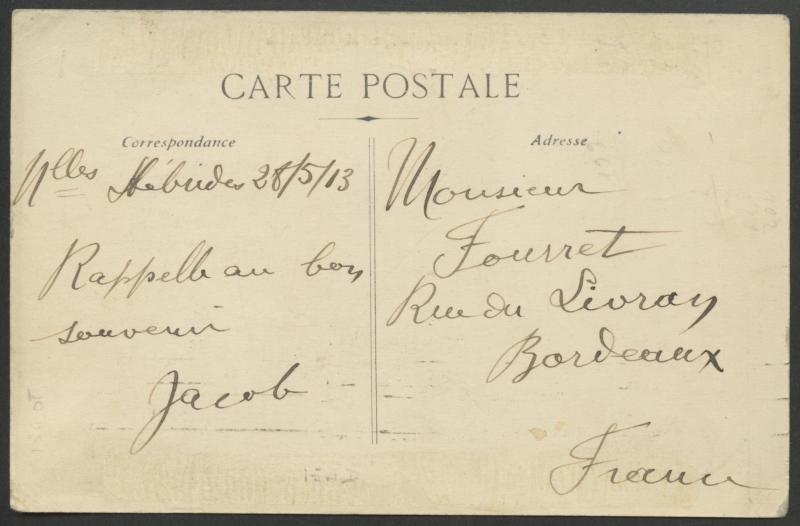 CARTE POSTALE
Correspondance
Nlles Hébrides 28/5/13
Rappelle au bon
souvenir
Jacob
Adresse
Monsieur
Fourret
Rue du Livran
Bordeaux
France